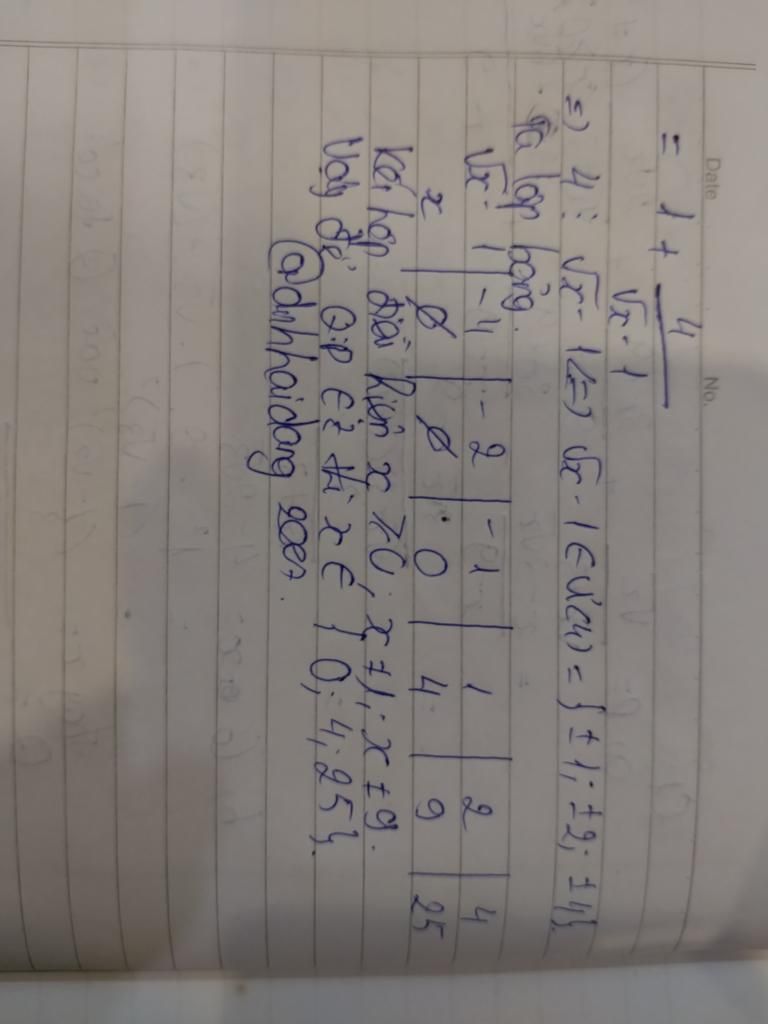 Date No.
= 1 + 4/(√x - 1)
=> 4 ⋮ √x - 1 <=> √x - 1 ∈ Ư(4) = {±1; ±2; ±4}.
Ta lập bảng.
√x - 1 | -4 | -2 | -1 | 1 | 2 | 4
x | ∅ | ∅ | 0 | 4 | 9 | 25
Kết hợp điều kiện x ≥ 0; x ≠ 1; x ≠ 9.
Vậy để Q.P ∈ Z thì x ∈ {0; 4; 25}.
@dinhhaidang2007.